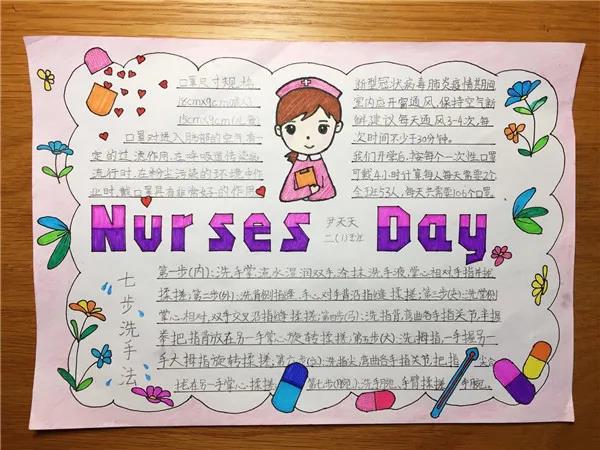 口罩尺寸规格
18cm×9cm(成人)
15cm×9cm(儿童)
口罩对进入肺部的空气有一
定的过滤作用，在呼吸道传染病
流行时，在粉尘污染的环境中作
业时，戴口罩具有非常好的作用
新型冠状病毒肺炎疫情期间
室内应开窗通风，保持空气新
鲜，建议每天通风3-4次，每
次时间不少于30分钟。
我们开学后，按每个一次性口罩
可戴4小时计算，每人每天需要2个
今班53人，每天共需要106个口罩。
Nurses Day
尹天天
二(1)班
七步洗手法
第一步(内)：洗手掌，流水湿润双手，涂抹洗手液，掌心相对手指并拢
揉搓；第二步(外)：洗背侧指缝，手心对手背沿指缝揉搓；第三步(夹)：洗掌侧
掌心相对，双手交叉沿指缝揉搓；第四步(弓)：洗指背，弯曲各手指关节，半握
拳把指背放在另一手掌心旋转揉搓；第五步(大)：洗拇指，一手握另一
手大拇指旋转揉搓；第六步(立)：洗指尖，弯曲各手指关节，把指尖合
拢在另一手掌心揉搓；第七步(腕)：洗手腕、手臂揉搓手腕。